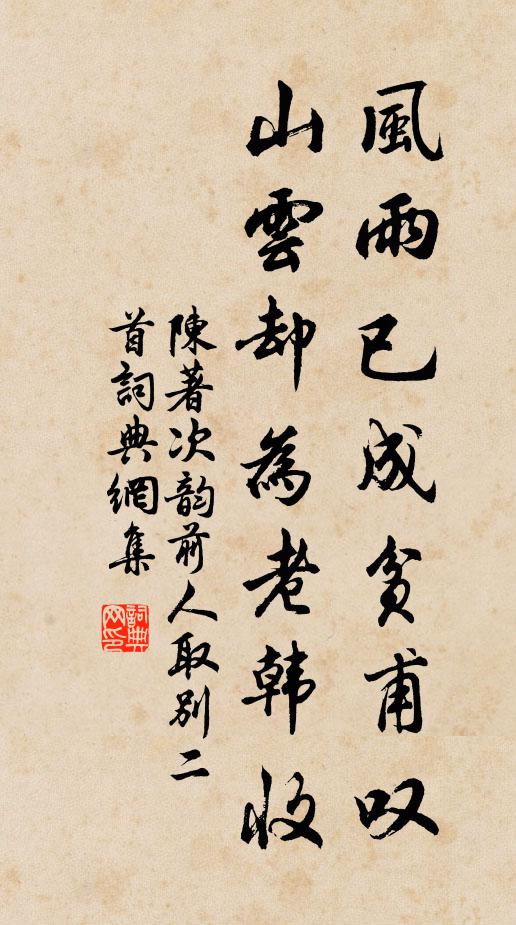 風雨已成貧甫叹
山雲却為老韩收
陳著次韵前人取别二
首詞典網集
詞典网印